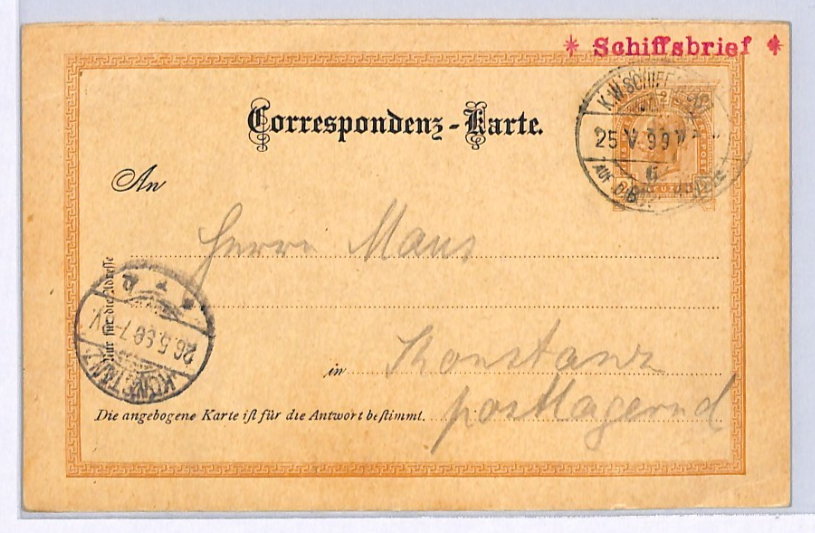 * Schiffsbrief *
Correspondenz-Karte.
25 V 99
An
Herrn Maus
Nur für die Adresse
26.5.
KONSTANZ
in Konstanz
Die angebogene Karte ist für die Antwort bestimmt.
postlagernd